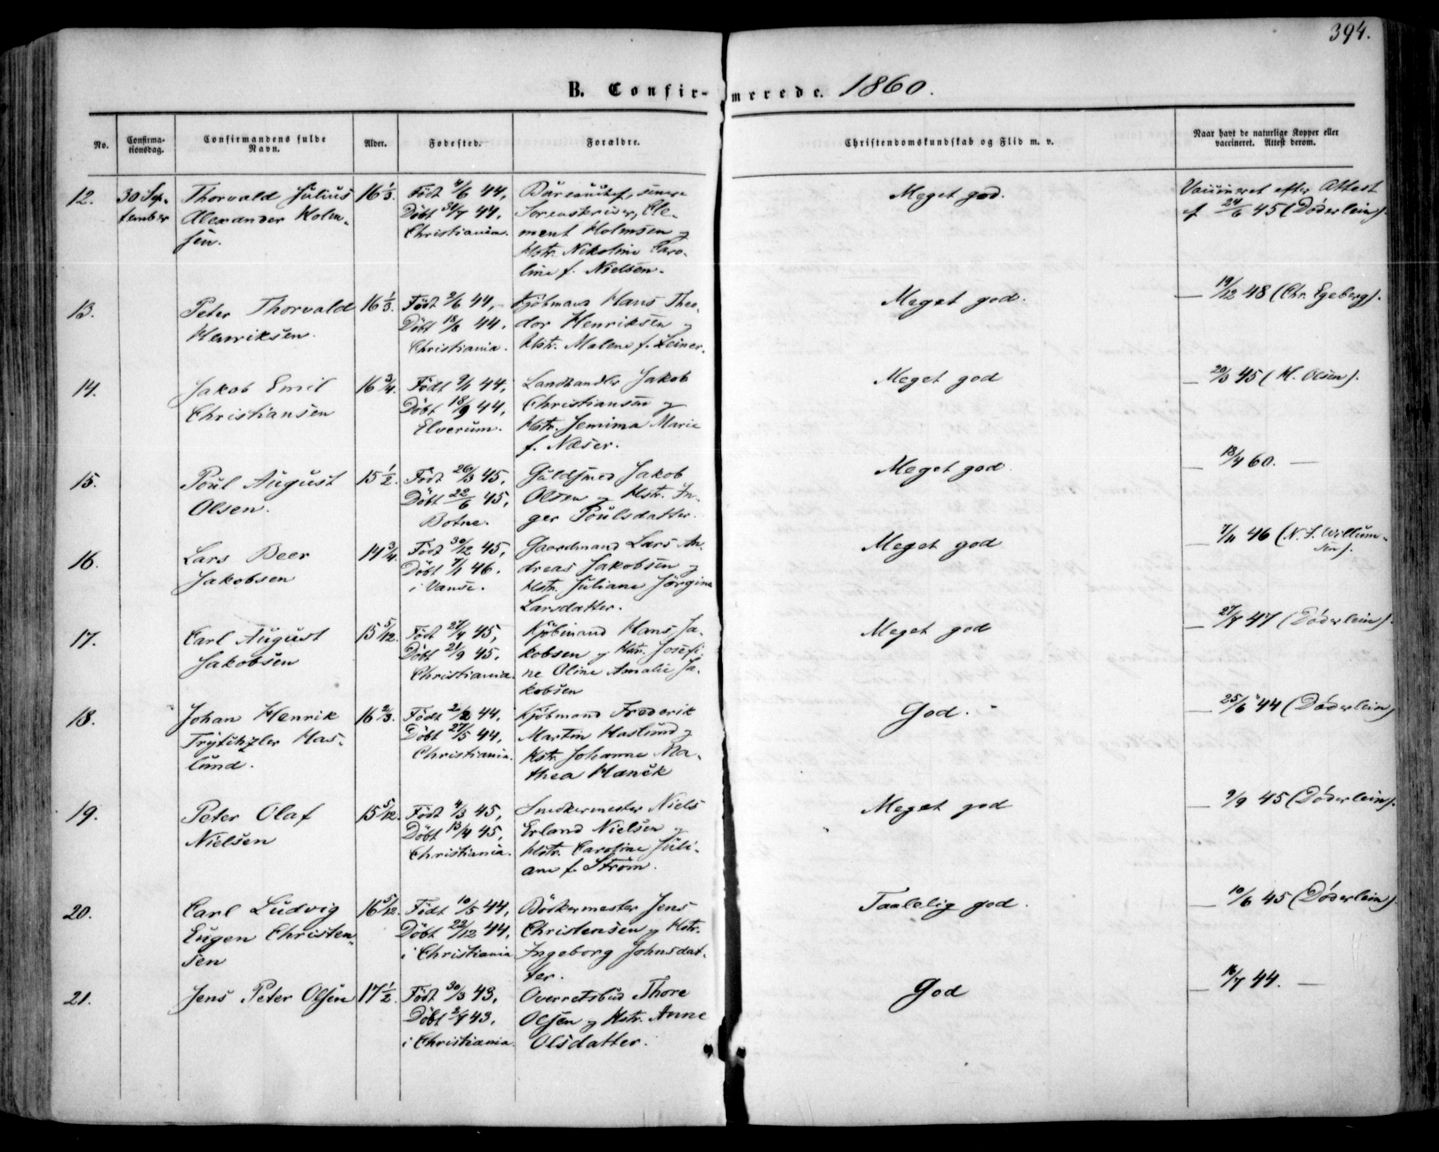 394.
B. Confirmerede. 1860.
No. Confirmationsdag. Confirmandens fulde Navn. Alder. Fødested. Forældre. Christendomskundskab og Flid m. v. Naar havt de naturlige Kopper eller vaccineret. Attest derom.
12. 30 September
Thorvald Julius
Alexander Holm-
sen.
16 1/3
Født 4/6 44,
Døbt 24/7 44.
Christiania.
Sorenskriver, Cle-
ment Holmsen og
Hstr. Nikoline Caro-
line f. Nielsen.
Meget god.
Vaccineret efter Attest
af 24/6 45 (Døderlein).
13.
Peter Thorvald
Henriksen.
16 1/3
Født 2/6 44,
Døbt 18/8 44.
Christiania.
Kjøbmand Hans Theo-
dor Henriksen og
Hstr. Malene f. Leiner.
Meget god.
— 19/12 48 (Chr. Egeberg).
14.
Jakob Emil
Christiansen
16 3/4
Født 9/1 44.
Døbt 18/9 44,
Elverum.
Landhandler Jakob
Christiansen og
Hstr. Jemima Marie
f. Næser.
Meget god
— 20/3 45 (H. Olsen).
15.
Poul August
Olsen.
15 1/2
Født 26/3 45,
Døbt 22/6 45,
Botne.
Guldsmed Jakob
Olsen og Hstr. In-
ger Poulsdatter.
Meget god.
— 13/4 60. —
16.
Lars Beer
Jakobsen
14 3/4
Født 30/12 45,
Døbt 7/1 46.
i Vanse.
Gaardmand Lars An-
dreas Jakobsen og
Hstr. Juliane Jørgine
Larsdatter.
Meget god
— 7/11 46 (N. J. Willum-
sen).
17.
Carl August
Jakobsen
15 5/12
Født 27/4 45,
Døbt 21/9 45.
Christiania.
Kjøbmand Hans Ja-
kobsen og Hstr. Josefi-
ne Oline Amalie Ja-
kobsen
Meget god
— 27/8 47 (Døderlein).
18.
Johan Henrik
Has-
lund.
16 2/3
Født 2/2 44,
Døbt 27/5 44,
Christiania.
Kjøbmand Frederik
Martin Haslund og
Hstr. Johanne Ma-
thea Hanck
God.
— 25/6 44 (Døderlein)
19.
Peter Olaf
Nielsen
15 5/12
Født 4/3 45,
Døbt 13/4 45,
Christiania.
Snedkermester Niels
Erland Nielsen og
Hstr. Caroline Juli-
ane f. Strøm.
Meget god
— 9/9 45 (Døderlein).
20.
Carl Ludvig
Eugen Christen-
sen
16 5/12
Født 10/5 44,
Døbt 22/12 44.
i Christiania
Bødkermester Jens
Christensen og Hstr.
Ingeborg Johnsdat-
ter.
Taalelig god.
— 10/6 45 (Døderlein).
21.
Jens Peter Olsen
17 1/2
Født 30/3 43,
Døbt 2/7 43,
i Christiania
Overretsbud Thore
Olsen og Hstr. Anne
Olsdatter.
God
— 16/7 44. —